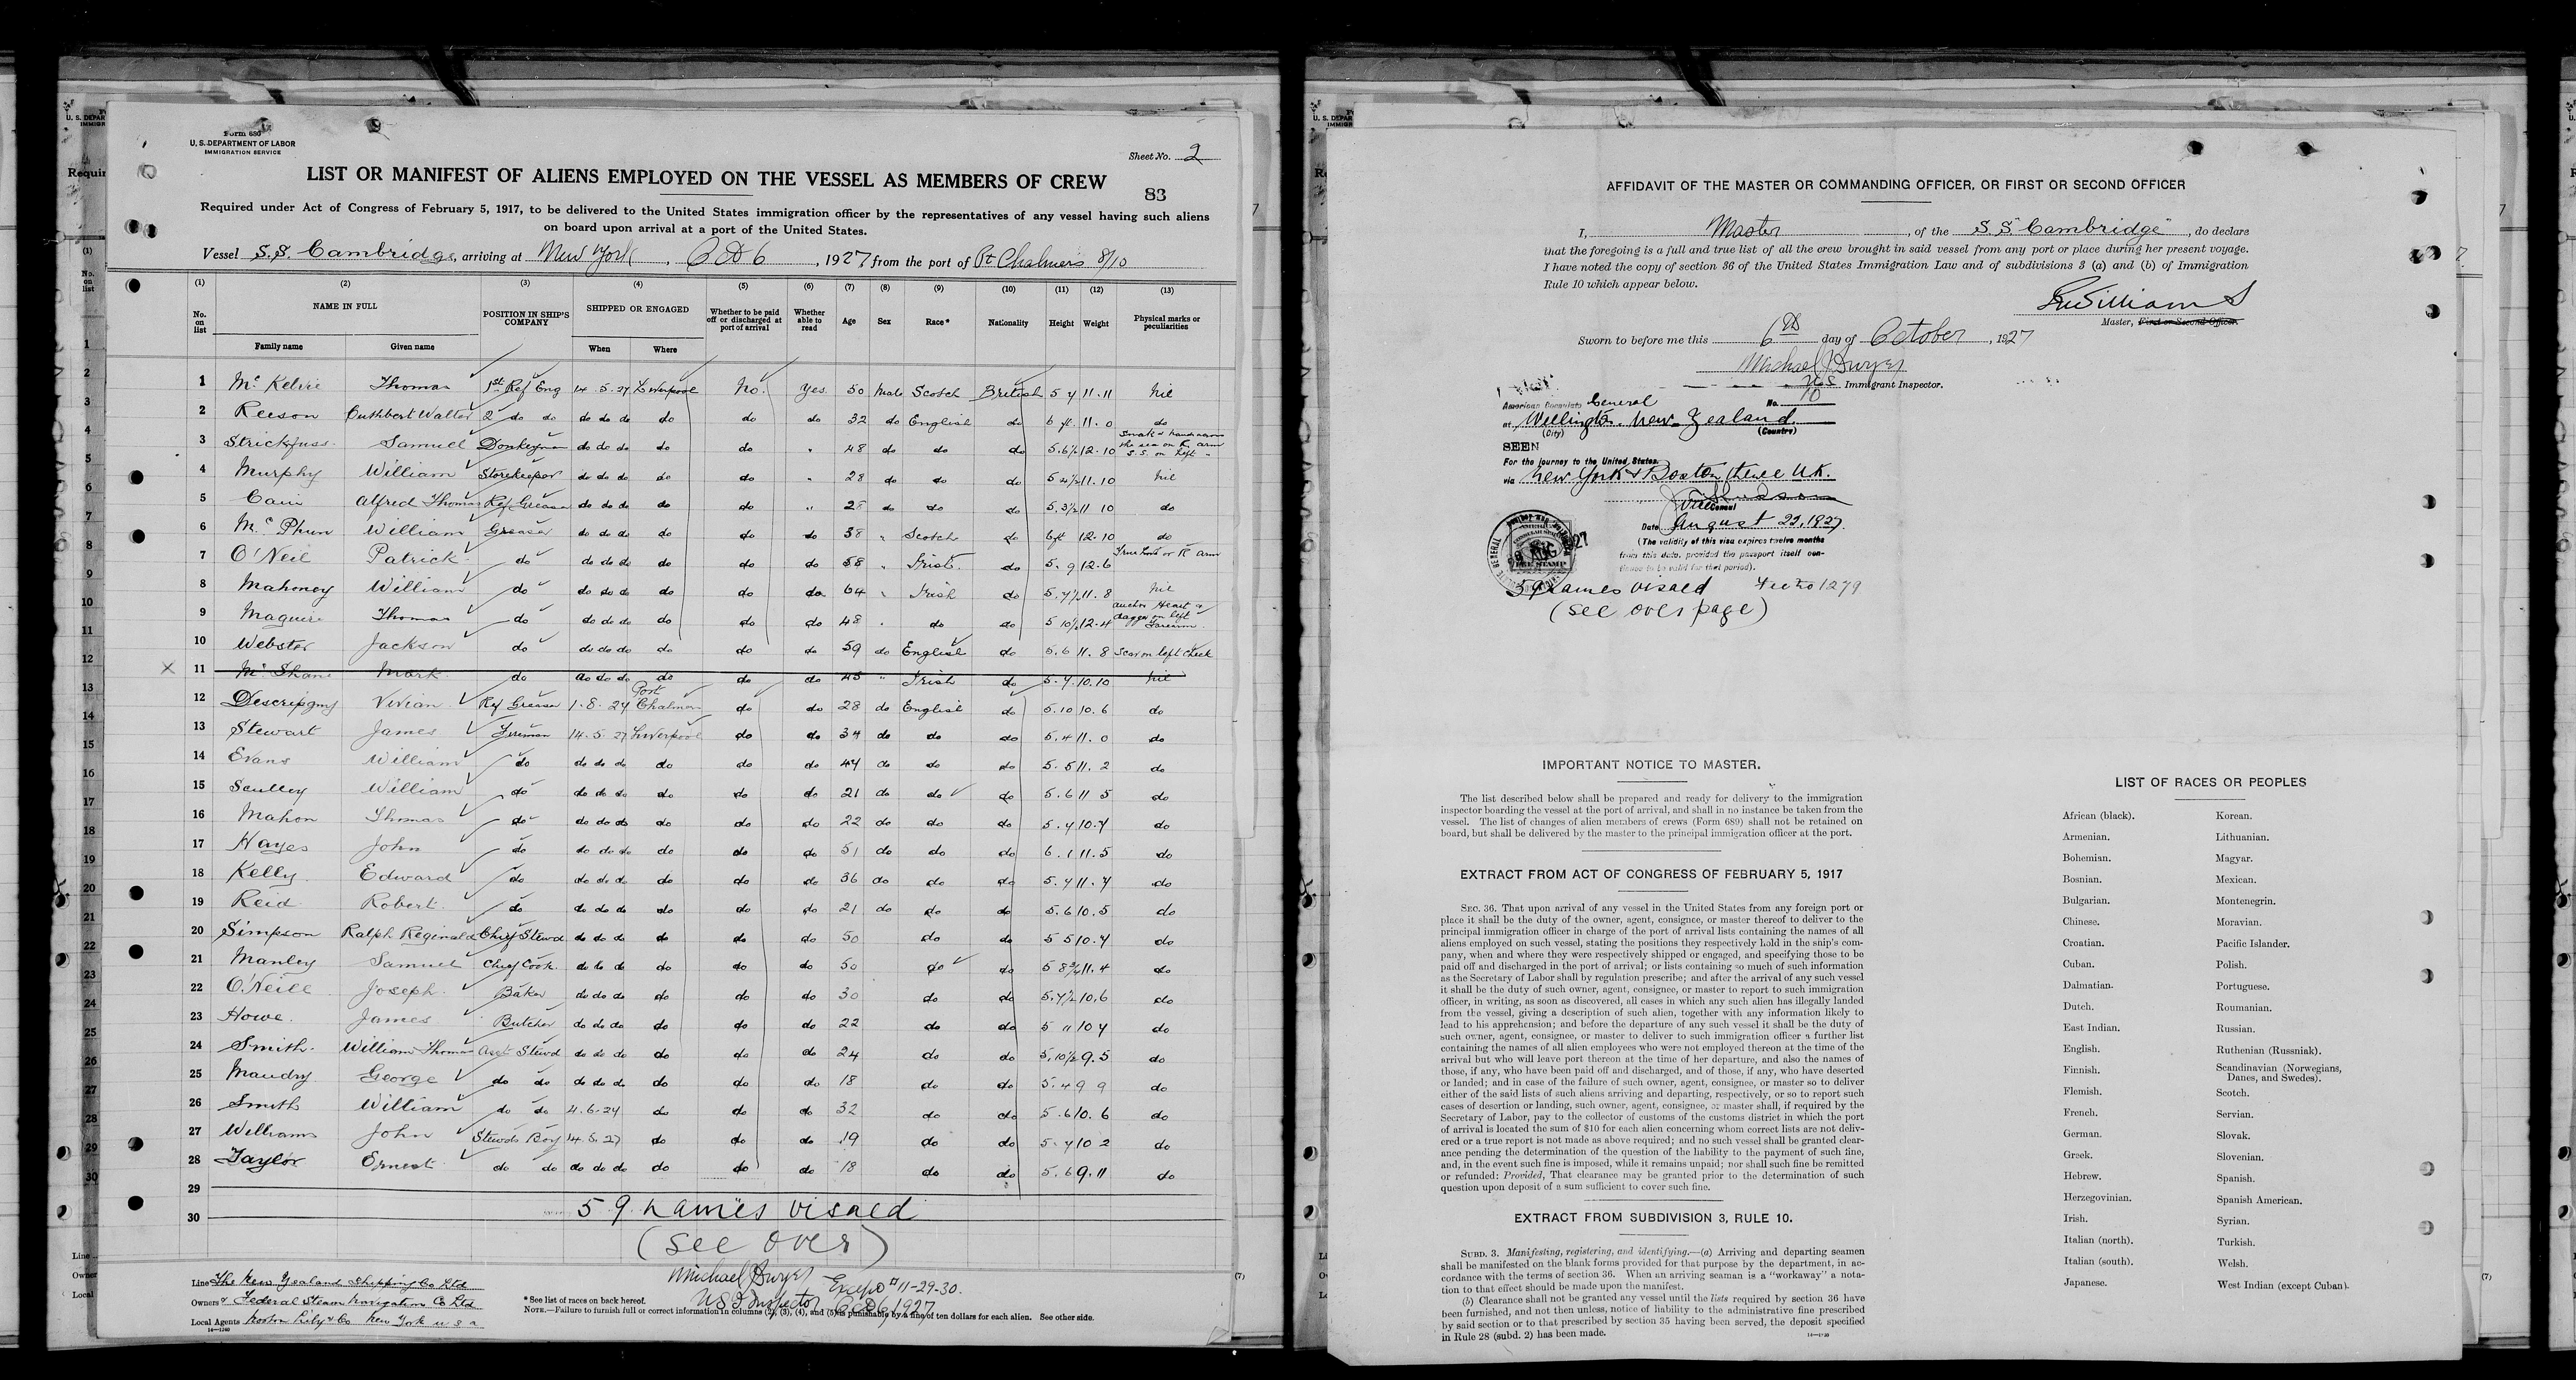 Form 680
U. S. DEPARTMENT OF LABOR
IMMIGRATION SERVICE
Sheet No. 2
LIST OR MANIFEST OF ALIENS EMPLOYED ON THE VESSEL AS MEMBERS OF CREW
83
Required under Act of Congress of February 5, 1917, to be delivered to the United States immigration officer by the representatives of any vessel having such aliens
on board upon arrival at a port of the United States.
Vessel S.S. Cambridge, arriving at New York, Oct 6, 1927 from the port of Pt Chalmers 8/10
(1) (2) (3) (4) (5) (6) (7) (8) (9) (10) (11) (12) (13)
No. on list NAME IN FULL POSITION IN SHIP'S COMPANY SHIPPED OR ENGAGED Whether to be paid off or discharged at port of arrival Whether able to read Age Sex Race* Nationality Height Weight Physical marks or peculiarities
Family name Given name When Where
1 McKelvie Thomas 1st Ref Eng 14.5.27 Liverpool No. Yes 50 Male Scotch British 5 7 11.11 Nil
2 Reeson Cuthbert Walter 2 do do do do do do do do 32 do English do 6 ft. 11.0 do
3 Strickfuss Samuel Donkeyman do do do do do " 48 do do do 5.6½ 12.10
4 Murphy William Storekeeper do do do do do " 28 do do do 11.10 Nil
5 Cain Alfred Thomas Ref Greaser do do do do do " 28 do do do 5.3½ 11 10 do
6 William Greaser do do do do do do 38 " Scotch do 6ft 12.10 do
7 O'Neil Patrick do do do do do do do 58 " Irish do 5.9 12.6
8 Mahoney William do do do do do do do 64 " Irish do 5.7½ 11.8 Nil
9 Maguire Thomas do do do do do do do 48 " do do 5 10½ 12.4 anchor Heart & dagger on left Forearm
10 Webster Jackson do do do do do do do 59 do English do 5.6 11.8 Scar on left cheek
11 McShane Mark do do do do do do do 45 " Irish do 5.7 10.10 Nil
12 Vivian Ref Greaser 1.8.27 Port Chalmers do do 28 do English do 5.10 10.6 do
13 Stewart James Fireman 14.5.27 Liverpool do do 34 do do do 5.4 11.0 do
14 Evans William do do do do do do do 47 do do do 5.5 11.2 do
15 Sculley William do do do do do do do 21 do do do 5.6 11 5 do
16 Mahon Thomas do do do do do do do 22 do do do 5.7 10.7 do
17 Hayes John do do do do do do do 51 do do do 6.1 11.5 do
18 Kelly Edward do do do do do do do 36 do do do 5.7 11.7 do
19 Reid Robert do do do do do do do 21 do do do 5.6 10.5 do
20 Simpson Ralph Reginald Chief Stewd do do do do do do 50 do do 5 5 10.7 do
21 Manley Samuel Chief Cook do do do do do do 50 do do 5 8¾ 11.4 do
22 O'Neill Joseph Baker do do do do do do 30 do do 5.7½ 10.6 do
23 Howe James Butcher do do do do do do 22 do do 5 " 10 7 do
24 Smith William Thomas Asst Stewd do do do do do do 24 do do 5.10½ 9.5 do
25 Maudry George do do do do do do do do 18 do do 5.4 9 9 do
26 Smith William do do 4.6.27 do do do 32 do do 5.6 10.6 do
27 Williams John Stewds Boy 14.5.27 do do do 19 do do 5.7 10 2 do
28 Taylor Ernest do do do do do do do do 18 do do 5.6 9.11 do
29
30 59 names visaed
(see over)
Michael J Dwyer
US I Inspector
Except # 11-29-30.
Oct 6, 1927
Line The New Zealand Shipping Co Ltd
Owners & Federal Steam Navigation Co Ltd
Local Agents Norton Lilly & Co New York U S A
14—1240
* See list of races on back hereof.
NOTE.—Failure to furnish full or correct information in columns (2), (3), (4), and (5) is punishable by a fine of ten dollars for each alien. See other side.
AFFIDAVIT OF THE MASTER OR COMMANDING OFFICER, OR FIRST OR SECOND OFFICER
I, Master, of the S.S. "Cambridge", do declare
that the foregoing is a full and true list of all the crew brought in said vessel from any port or place during her present voyage.
I have noted the copy of section 36 of the United States Immigration Law and of subdivisions 3 (a) and (b) of Immigration
Rule 10 which appear below.
Williams
Master, First or Second Officer.
Sworn to before me this 6th day of October, 1927
Michael J Dwyer
US Immigrant Inspector.
American Consulate General No. 10
at Wellington, New Zealand.
(City) (Country)
SEEN
For the journey to the United States.
via New York & Boston thence U.K.
Vice Consul
Date August 22, 1927.
(The validity of this visa expires twelve months
from this date, provided the passport itself con-
tinues to be valid for that period).
59 names visaed Fee No 1279
(see over page)
IMPORTANT NOTICE TO MASTER.
The list described below shall be prepared and ready for delivery to the immigration
inspector boarding the vessel at the port of arrival, and shall in no instance be taken from the
vessel. The list of changes of alien members of crews (Form 689) shall not be retained on
board, but shall be delivered by the master to the principal immigration officer at the port.
EXTRACT FROM ACT OF CONGRESS OF FEBRUARY 5, 1917
SEC. 36. That upon arrival of any vessel in the United States from any foreign port or
place it shall be the duty of the owner, agent, consignee, or master thereof to deliver to the
principal immigration officer in charge of the port of arrival lists containing the names of all
aliens employed on such vessel, stating the positions they respectively hold in the ship's com-
pany, when and where they were respectively shipped or engaged, and specifying those to be
paid off and discharged in the port of arrival; or lists containing so much of such information
as the Secretary of Labor shall by regulation prescribe; and after the arrival of any such vessel
it shall be the duty of such owner, agent, consignee, or master to report to such immigration
officer, in writing, as soon as discovered, all cases in which any such alien has illegally landed
from the vessel, giving a description of such alien, together with any information likely to
lead to his apprehension; and before the departure of any such vessel it shall be the duty of
such owner, agent, consignee, or master to deliver to such immigration officer a further list
containing the names of all alien employees who were not employed thereon at the time of the
arrival but who will leave port thereon at the time of her departure, and also the names of
those, if any, who have been paid off and discharged, and of those, if any, who have deserted
or landed; and in case of the failure of such owner, agent, consignee, or master so to deliver
either of the said lists of such aliens arriving and departing, respectively, or so to report such
cases of desertion or landing, such owner, agent, consignee, or master shall, if required by the
Secretary of Labor, pay to the collector of customs of the customs district in which the port
of arrival is located the sum of $10 for each alien concerning whom correct lists are not deliv-
ered or a true report is not made as above required; and no such vessel shall be granted clear-
ance pending the determination of the question of the liability to the payment of such fine,
and, in the event such fine is imposed, while it remains unpaid; nor shall such fine be remitted
or refunded: Provided, That clearance may be granted prior to the determination of such
question upon deposit of a sum sufficient to cover such fine.
EXTRACT FROM SUBDIVISION 3, RULE 10.
SUBD. 3. Manifesting, registering, and identifying.—(a) Arriving and departing seamen
shall be manifested on the blank forms provided for that purpose by the department, in ac-
cordance with the terms of section 36. When an arriving seaman is a "workaway" a nota-
tion to that effect should be made upon the manifest.
(b) Clearance shall not be granted any vessel until the lists required by section 36 have
been furnished, and not then unless, notice of liability to the administrative fine prescribed
by said section or to that prescribed by section 35 having been served, the deposit specified
in Rule 28 (subd. 2) has been made.
LIST OF RACES OR PEOPLES
African (black). Korean.
Armenian. Lithuanian.
Bohemian. Magyar.
Bosnian. Mexican.
Bulgarian. Montenegrin.
Chinese. Moravian.
Croatian. Pacific Islander.
Cuban. Polish.
Dalmatian. Portuguese.
Dutch. Roumanian.
East Indian. Russian.
English. Ruthenian (Russniak).
Finnish. Scandinavian (Norwegians,
Danes, and Swedes).
Flemish. Scotch.
French. Servian.
German. Slovak.
Greek. Slovenian.
Hebrew. Spanish.
Herzegovinian. Spanish American.
Irish. Syrian.
Italian (north). Turkish.
Italian (south). Welsh.
Japanese. West Indian (except Cuban).